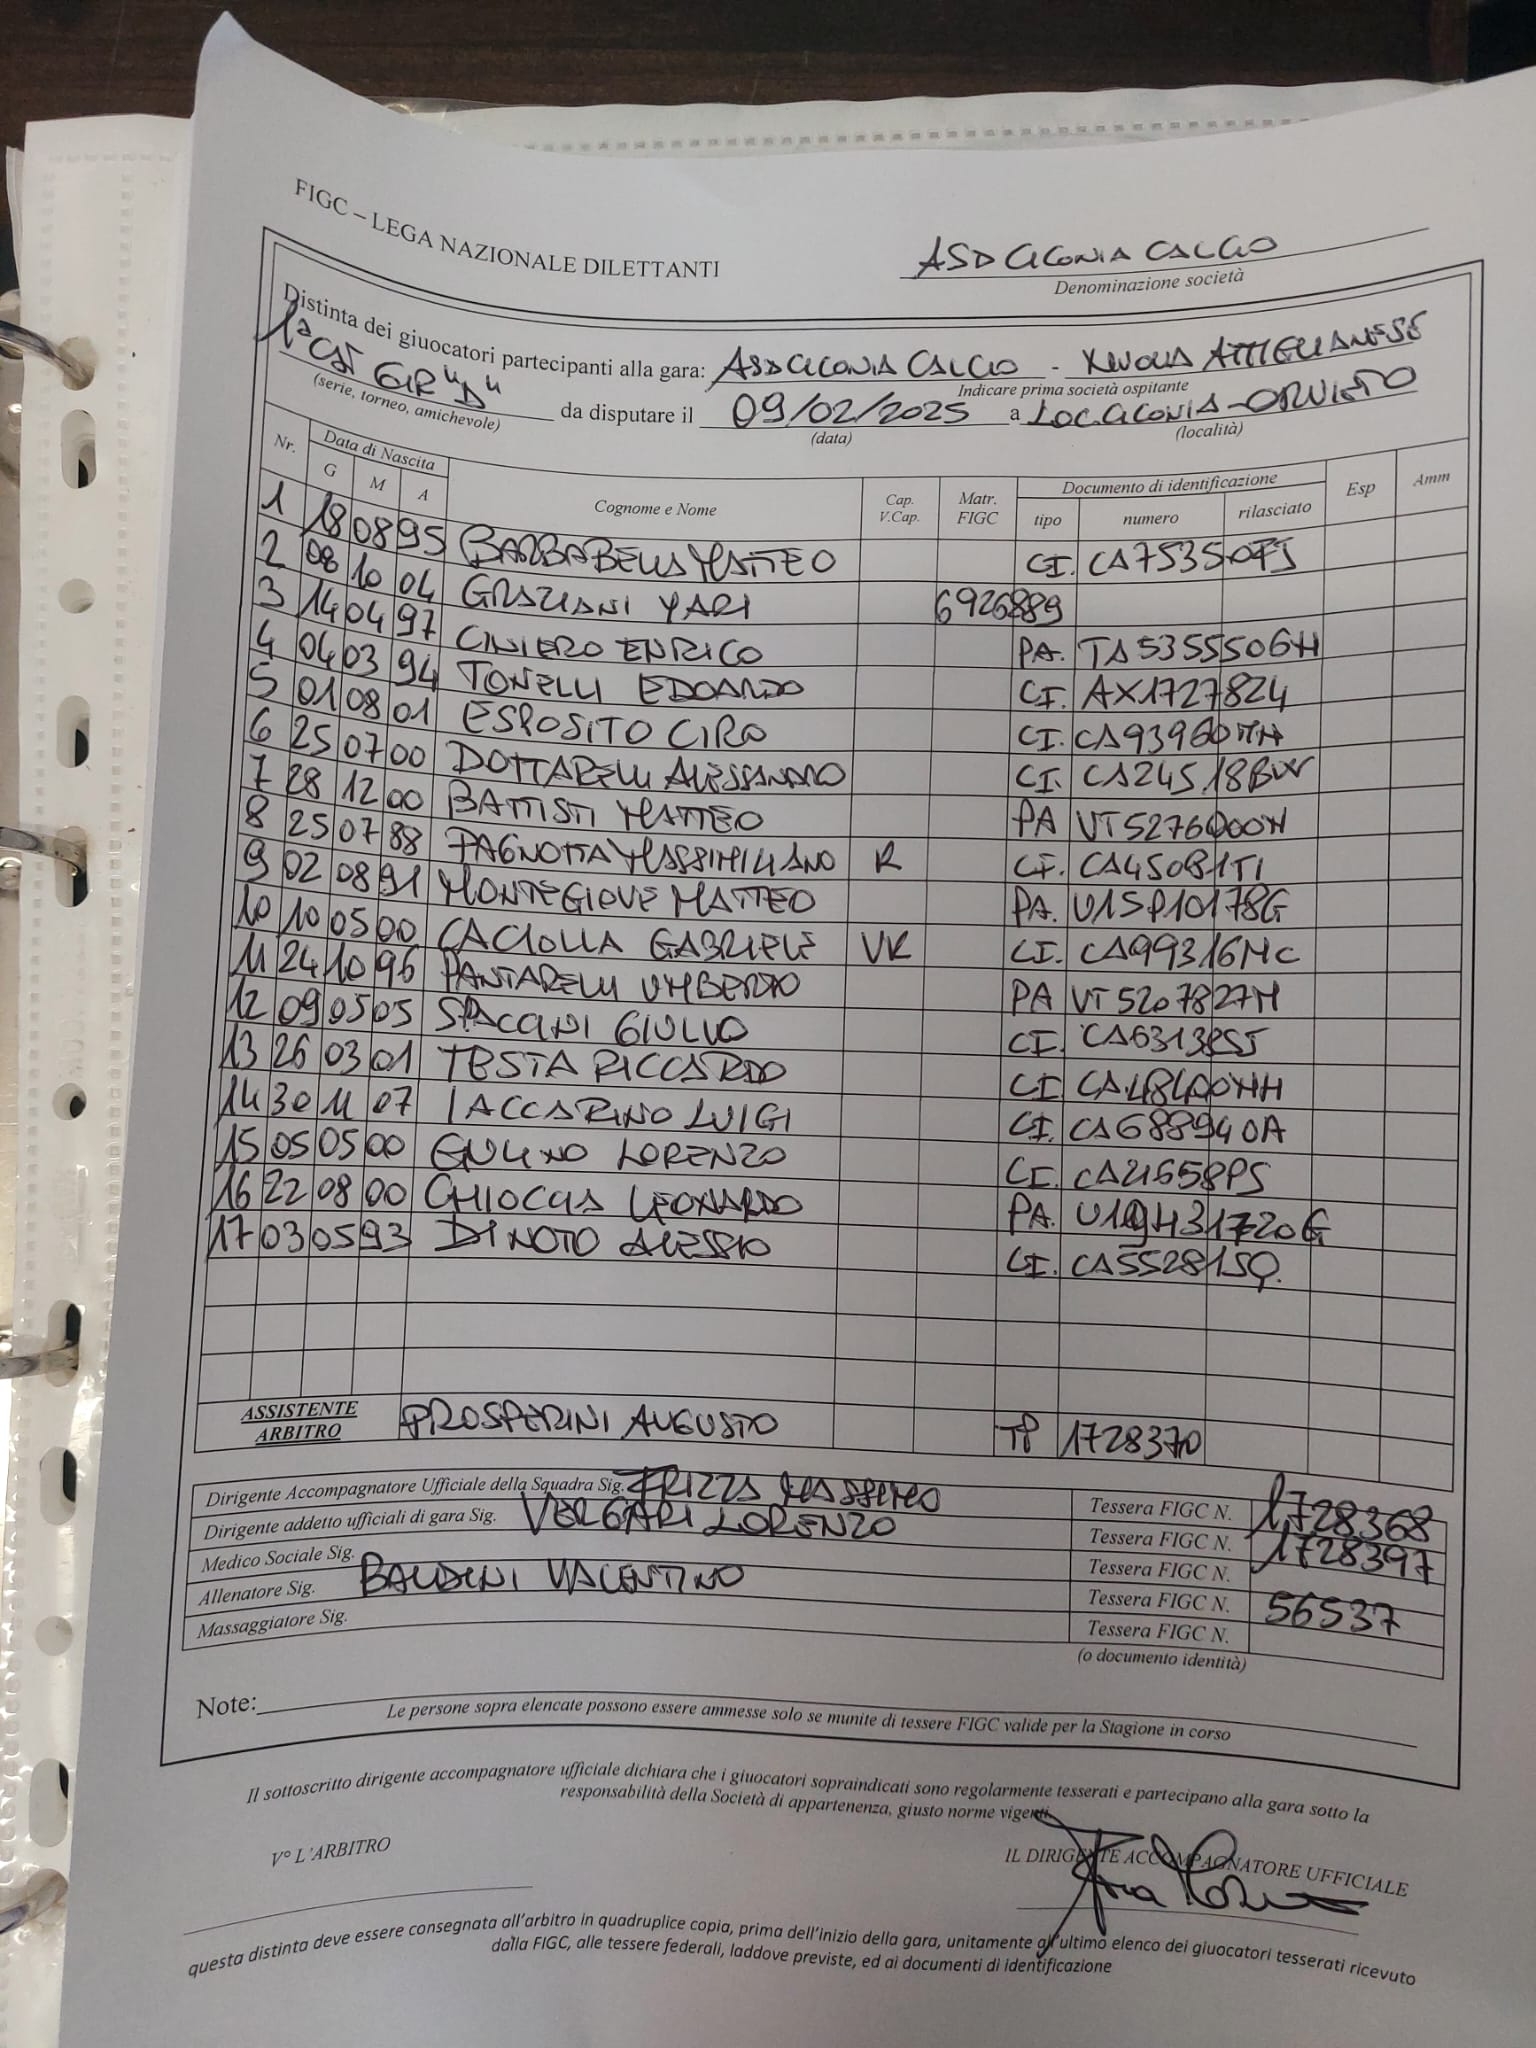 FIGC – LEGA NAZIONALE DILETTANTI
ASD CICONIA CALCIO
Denominazione società
Distinta dei giuocatori partecipanti alla gara: ASD CICONIA CALCIO - NUOVA ATTIGLIANESE
Indicare prima società ospitante
1ª CAT GIR "D" da disputare il 09/02/2025 a LOC. CICONIA - ORVIETO
(serie, torneo, amichevole) (data) (località)
Nr. Data di Nascita Cognome e Nome Cap. V.Cap. Matr. FIGC Documento di identificazione Esp Amm
G M A tipo numero rilasciato
1 18 08 95 BARBABELLA MATTEO CI. CA75350FJ
2 08 10 04 GRAZIANI YARI 6926889
3 14 04 97 CINIERO ENRICO PA. TA5355506H
4 04 03 94 TONELLI EDOARDO CI. AX1727824
5 01 08 01 ESPOSITO CIRO CI.
6 25 07 00 DOTTARELLI ALESSANDRO CI. CA24518BW
7 28 12 00 BATTISTI MATTEO PA VT5276000H
8 25 07 88 PAGNOTTA MASSIMILIANO K CI. CA45081TI
9 02 08 91 MONTEGIOVE MATTEO PA. U15P10178G
10 10 05 00 CACIOLLA GABRIELE VK CI. CA99316MC
11 24 10 96 PANTARELLI UMBERTO PA VT5207827H
12 09 05 05 SPACCINI GIULIO CI. CA63138SJ
13 26 03 01 TESTA RICCARDO CI
14 30 11 07 IACCARINO LUIGI CI. CA68894OA
15 05 05 00 LORENZO CI. CA21658PS
16 22 08 00 CHIOCCIA LEONARDO PA.
17 03 05 93 DI NOTO ALESSIO CI. CA55281SQ.
ASSISTENTE ARBITRO PROSPERINI AUGUSTO TP 1728370
Dirigente Accompagnatore Ufficiale della Squadra Sig. FRIZZA MASSIMO Tessera FIGC N. 1728368
Dirigente addetto ufficiali di gara Sig. VERGARI LORENZO Tessera FIGC N. 1728397
Medico Sociale Sig. Tessera FIGC N.
Allenatore Sig. BALDINI VALENTINO Tessera FIGC N. 56537
Massaggiatore Sig. Tessera FIGC N.
(o documento identità)
Note:
Le persone sopra elencate possono essere ammesse solo se munite di tessere FIGC valide per la Stagione in corso
Il sottoscritto dirigente accompagnatore ufficiale dichiara che i giuocatori sopraindicati sono regolarmente tesserati e partecipano alla gara sotto la
responsabilità della Società di appartenenza, giusto norme vigenti.
V° L'ARBITRO
IL DIRIGENTE ACCOMPAGNATORE UFFICIALE
questa distinta deve essere consegnata all'arbitro in quadruplice copia, prima dell'inizio della gara, unitamente all'ultimo elenco dei giuocatori tesserati ricevuto
dalla FIGC, alle tessere federali, laddove previste, ed ai documenti di identificazione